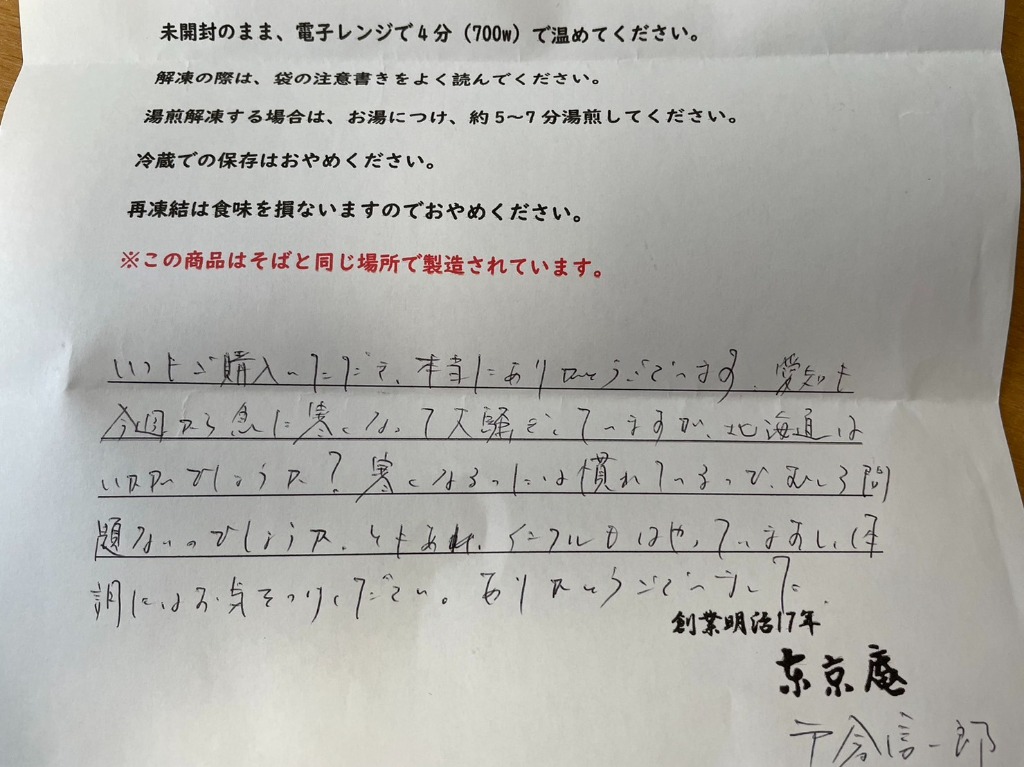 未開封のまま、電子レンジで4分（700w）で温めてください。
解凍の際は、袋の注意書きをよく読んでください。
湯煎解凍する場合は、お湯につけ、約5～7分湯煎してください。
冷蔵での保存はおやめください。
再凍結は食味を損ないますのでおやめください。
※この商品はそばと同じ場所で製造されています。
いつもご購入いただき、本当にありがとうございます。愛知も
今週から急に寒くなって大騒ぎしていますが、北海道は
いかがでしょうか？寒くなるのには慣れているので、むしろ問
題ないのでしょうか。ともあれ、インフルもはやっていますし、体
調にはお気をつけください。ありがとうございました。
創業明治17年
東京庵
戸倉信一郎